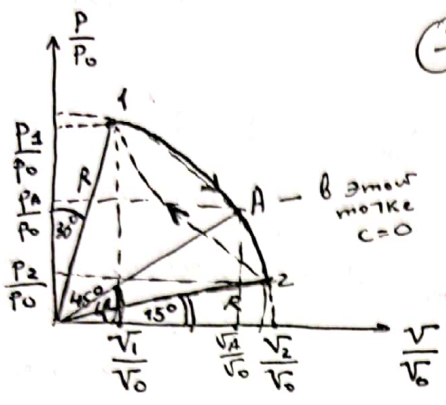 P/P₀
1
P₁/P₀
R
PA/P₀
30°
A — в этой
точке
c=0
P₂/P₀
45°
15°
R
2
V₁/V₀
VA/V₀
V₂/V₀
V/V₀